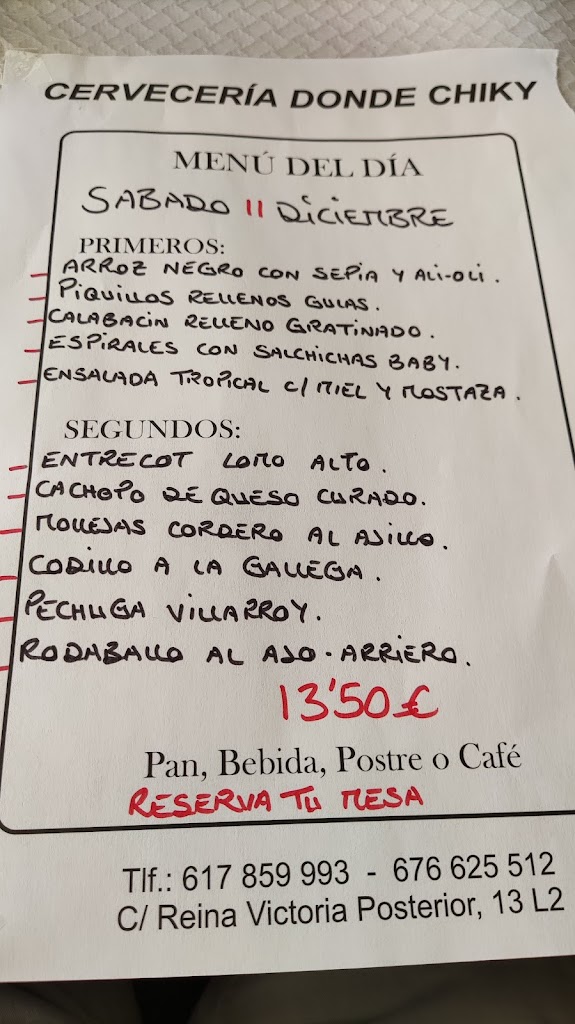 CERVECERÍA DONDE CHIKY
MENÚ DEL DÍA
SABADO 11 DICIEMBRE
PRIMEROS:
- ARROZ NEGRO CON SEPIA Y ALI-OLI.
- PIQUILLOS RELLENOS GULAS.
- CALABACIN RELLENO GRATINADO.
- ESPIRALES CON SALCHICHAS BABY.
- ENSALADA TROPICAL C/ MIEL Y MOSTAZA.
SEGUNDOS:
- ENTRECOT LOMO ALTO.
- CACHOPO DE QUESO CURADO.
- MOLLEJAS CORDERO AL AJILLO.
- CODILLO A LA GALLEGA.
- PECHUGA VILLARROY.
- RODABALLO AL AJO-ARRIERO.
13'50€
Pan, Bebida, Postre o Café
RESERVA TU MESA
Tlf.: 617 859 993 - 676 625 512
C/ Reina Victoria Posterior, 13 L2